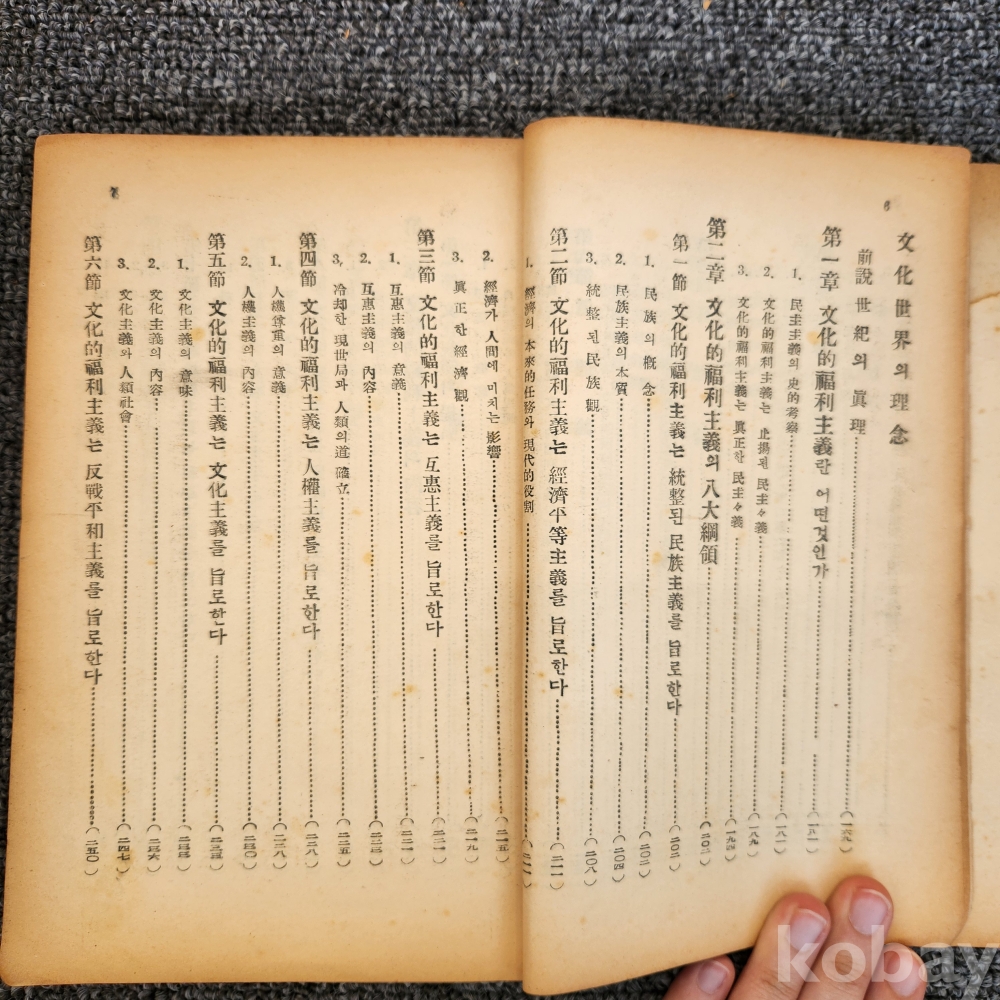 6
文化世界의 理念
前說 世紀의 眞理……(一六九)
第一章 文化的福利主義란 어떤것인가……(一八一)
1. 民主主義의 史的考察……(一八一)
2. 文化的福利主義는 止揚된 民主々義……(一八九)
3. 文化的福利主義는 眞正한 民主々義……(一九四)
第二章 文化的福利主義의 八大綱領……(二〇二)
第一節 文化的福利主義는 統整된 民族主義를 旨로한다……(二〇二)
1. 民族의 槪念……(二〇二)
2. 民族主義의 本質……(二〇四)
3. 統整된 民族觀……(二〇八)
第二節 文化的福利主義는 經濟平等主義를 旨로한다……(二一一)
1. 經濟의 本來的任務와 現代的役割……(二一一)
2. 經濟가 人間에 미치는 影響……(二一五)
3. 眞正한 經濟觀……(二一九)
第三節 文化的福利主義는 互惠主義를 旨로한다……(二二一)
1. 互惠主義의 意義……(二二一)
2. 互惠主義의 內容……(二二三)
3. 冷却한 現世局과 人類의道 確立……(二二五)
第四節 文化的福利主義는 人權主義를 旨로한다……(二二八)
1. 人權尊重의 意義……(二二八)
2. 人權主義의 內容……(二三〇)
第五節 文化的福利主義는 文化主義를 旨로한다……(二三三)
1. 文化主義의 意味……(二三三)
2. 文化主義의 內容……(二三六)
3. 文化主義와 人類社會……(二四七)
第六節 文化的福利主義는 反戰平和主義를 旨로한다……(二五〇)
7
kobay